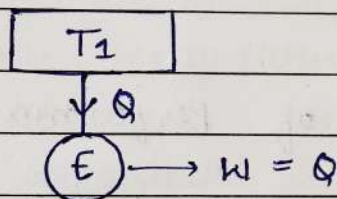 T1
Q
E W = Q